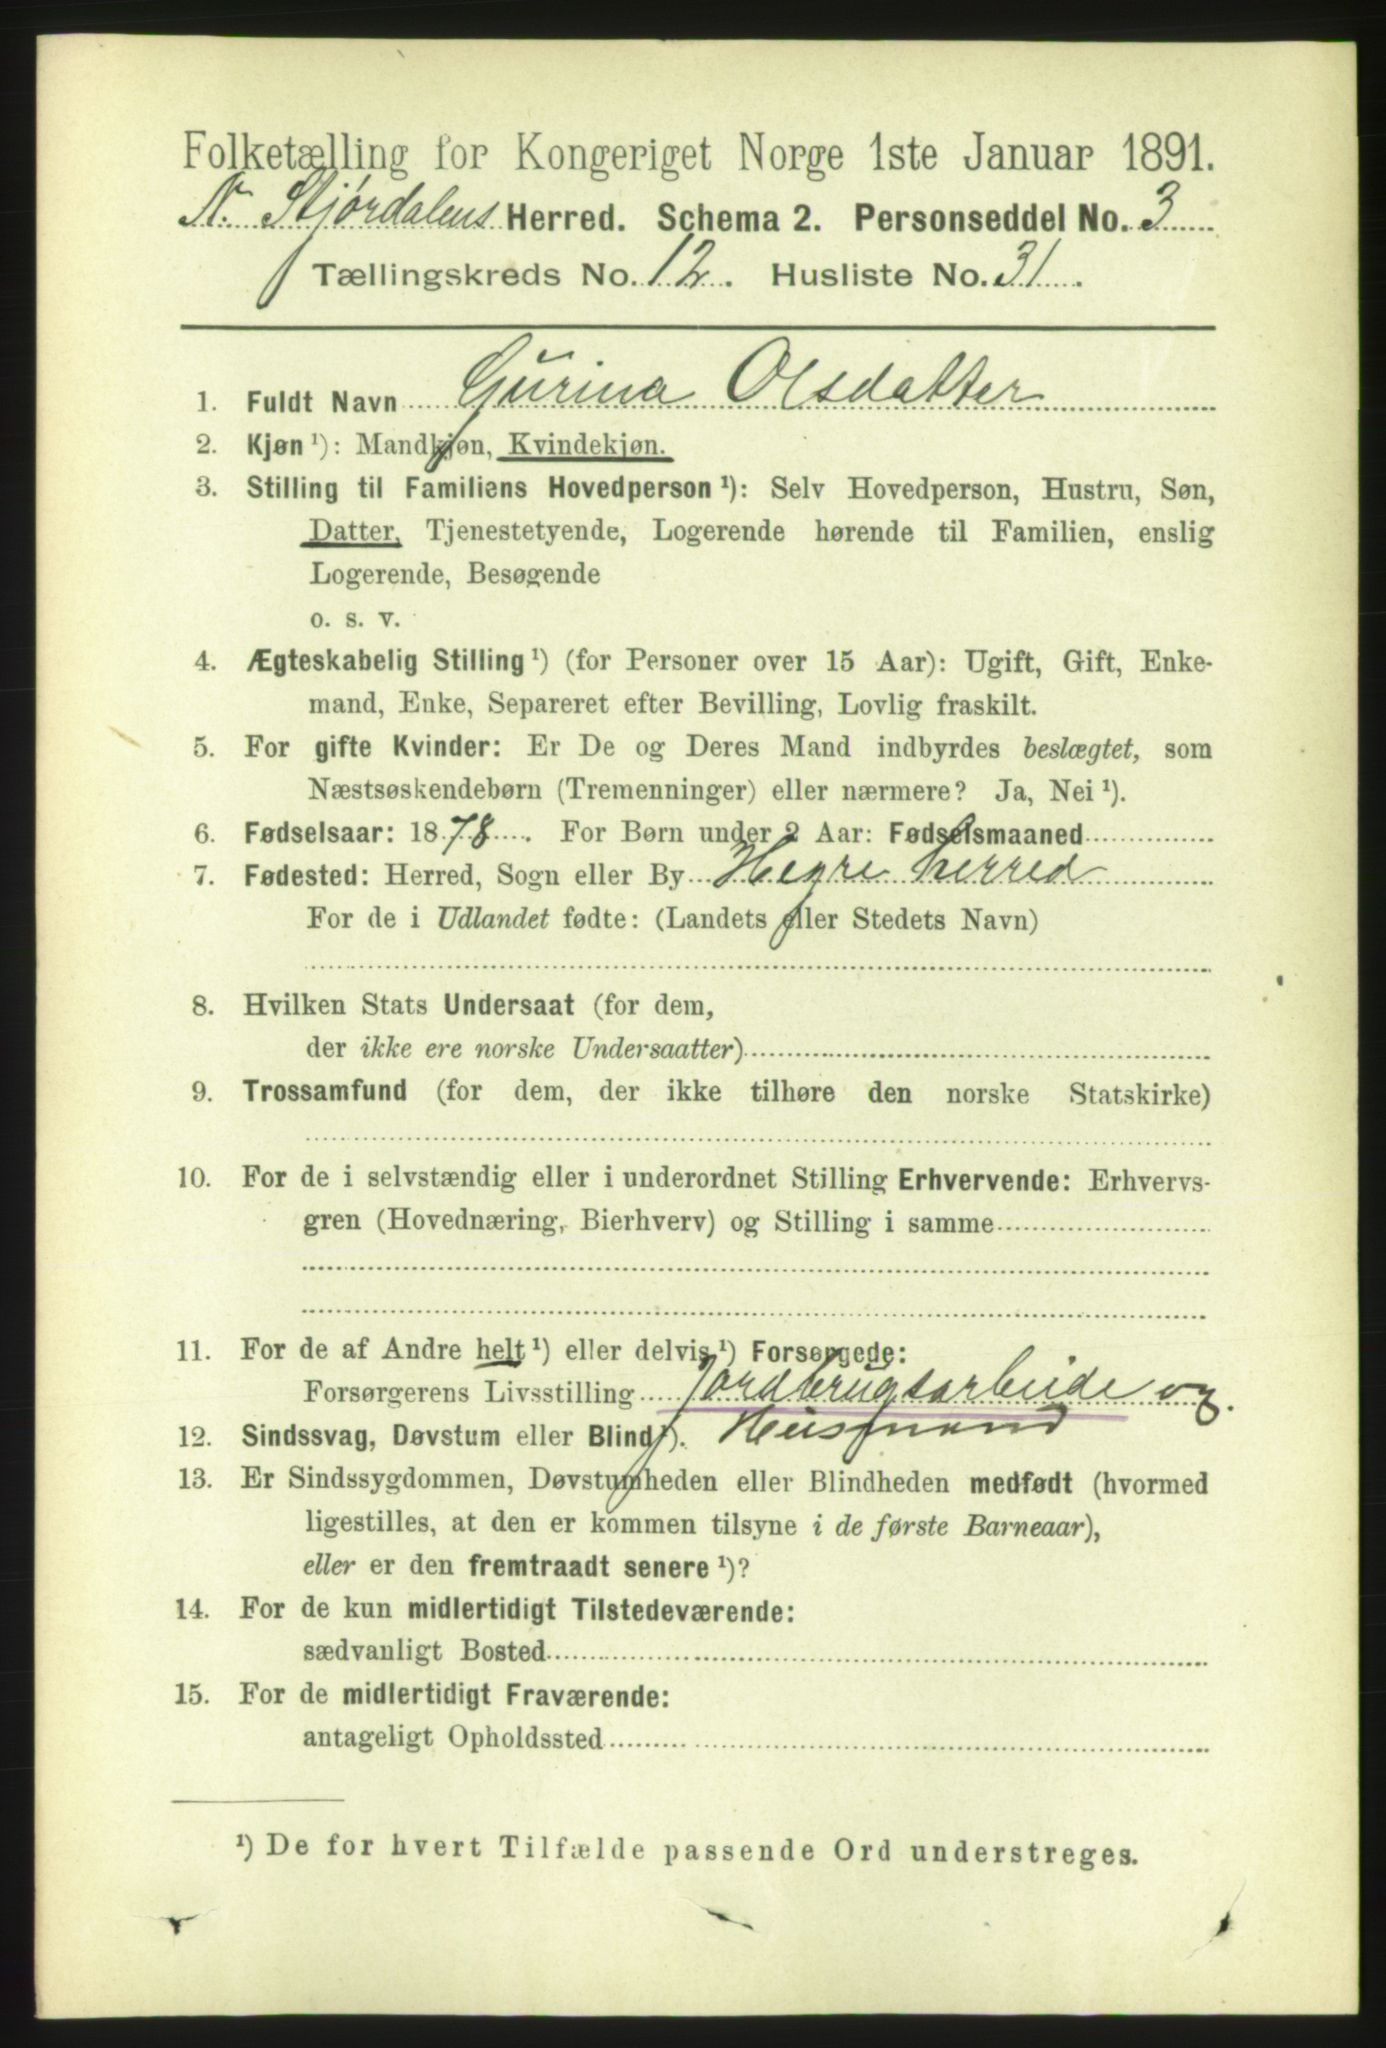 Folketælling for Kongeriget Norge 1ste Januar 1891.
N. Stjørdalens Herred. Schema 2. Personseddel No. 3
Tællingskreds No. 12. Husliste No. 31.
1. Fuldt Navn Gurina Olsdatter
2. Kjøn ¹): Mandkjøn, Kvindekjøn.
3. Stilling til Familiens Hovedperson ¹): Selv Hovedperson, Hustru, Søn,
Datter, Tjenestetyende, Logerende hørende til Familien, enslig
Logerende, Besøgende
o. s. v.
4. Ægteskabelig Stilling ¹) (for Personer over 15 Aar): Ugift, Gift, Enke-
mand, Enke, Separeret efter Bevilling, Lovlig fraskilt.
5. For gifte Kvinder: Er De og Deres Mand indbyrdes beslægtet, som
Næstsøskendebørn (Tremenninger) eller nærmere? Ja, Nei ¹).
6. Fødselsaar: 1878. For Børn under 2 Aar: Fødselsmaaned
7. Fødested: Herred, Sogn eller By Hegre herred
For de i Udlandet fødte: (Landets eller Stedets Navn)
8. Hvilken Stats Undersaat (for dem,
der ikke ere norske Undersaatter)
9. Trossamfund (for dem, der ikke tilhøre den norske Statskirke)
10. For de i selvstændig eller i underordnet Stilling Erhvervende: Erhvervs-
gren (Hovednæring, Bierhverv) og Stilling i samme
11. For de af Andre helt ¹) eller delvis ¹) Forsørgede:
Forsørgerens Livsstilling Jordbrugsarbeide og.
Husmand
12. Sindssvag, Døvstum eller Blind ¹).
13. Er Sindssygdommen, Døvstumheden eller Blindheden medfødt (hvormed
ligestilles, at den er kommen tilsyne i de første Barneaar),
eller er den fremtraadt senere ¹)?
14. For de kun midlertidigt Tilstedeværende:
sædvanligt Bosted
15. For de midlertidigt Fraværende:
antageligt Opholdssted
¹) De for hvert Tilfælde passende Ord understreges.